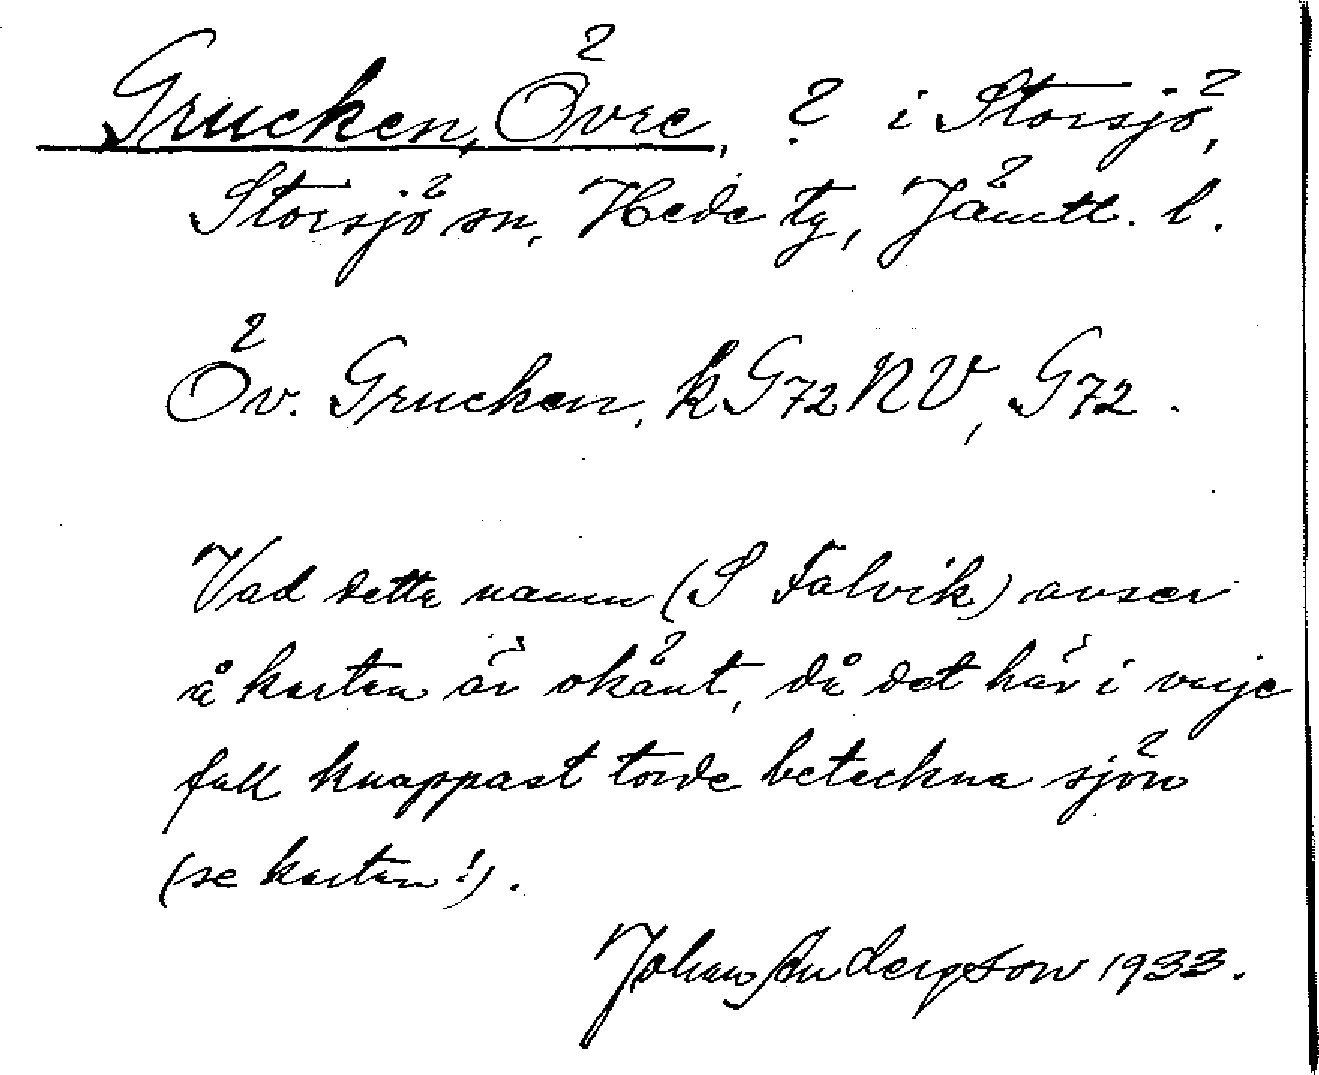 Grucken, Övre, ? i Storsjö,
Storsjö sn, Hede tg, Jämtl. l.
Öv. Grucken, k G72 NV, G72.
Vad detta namn (S Falvik) avser
å kartan är okänt, då det här i varje
fall knappast torde beteckna sjön
(se kartan!).
Johan Anderson 1933.